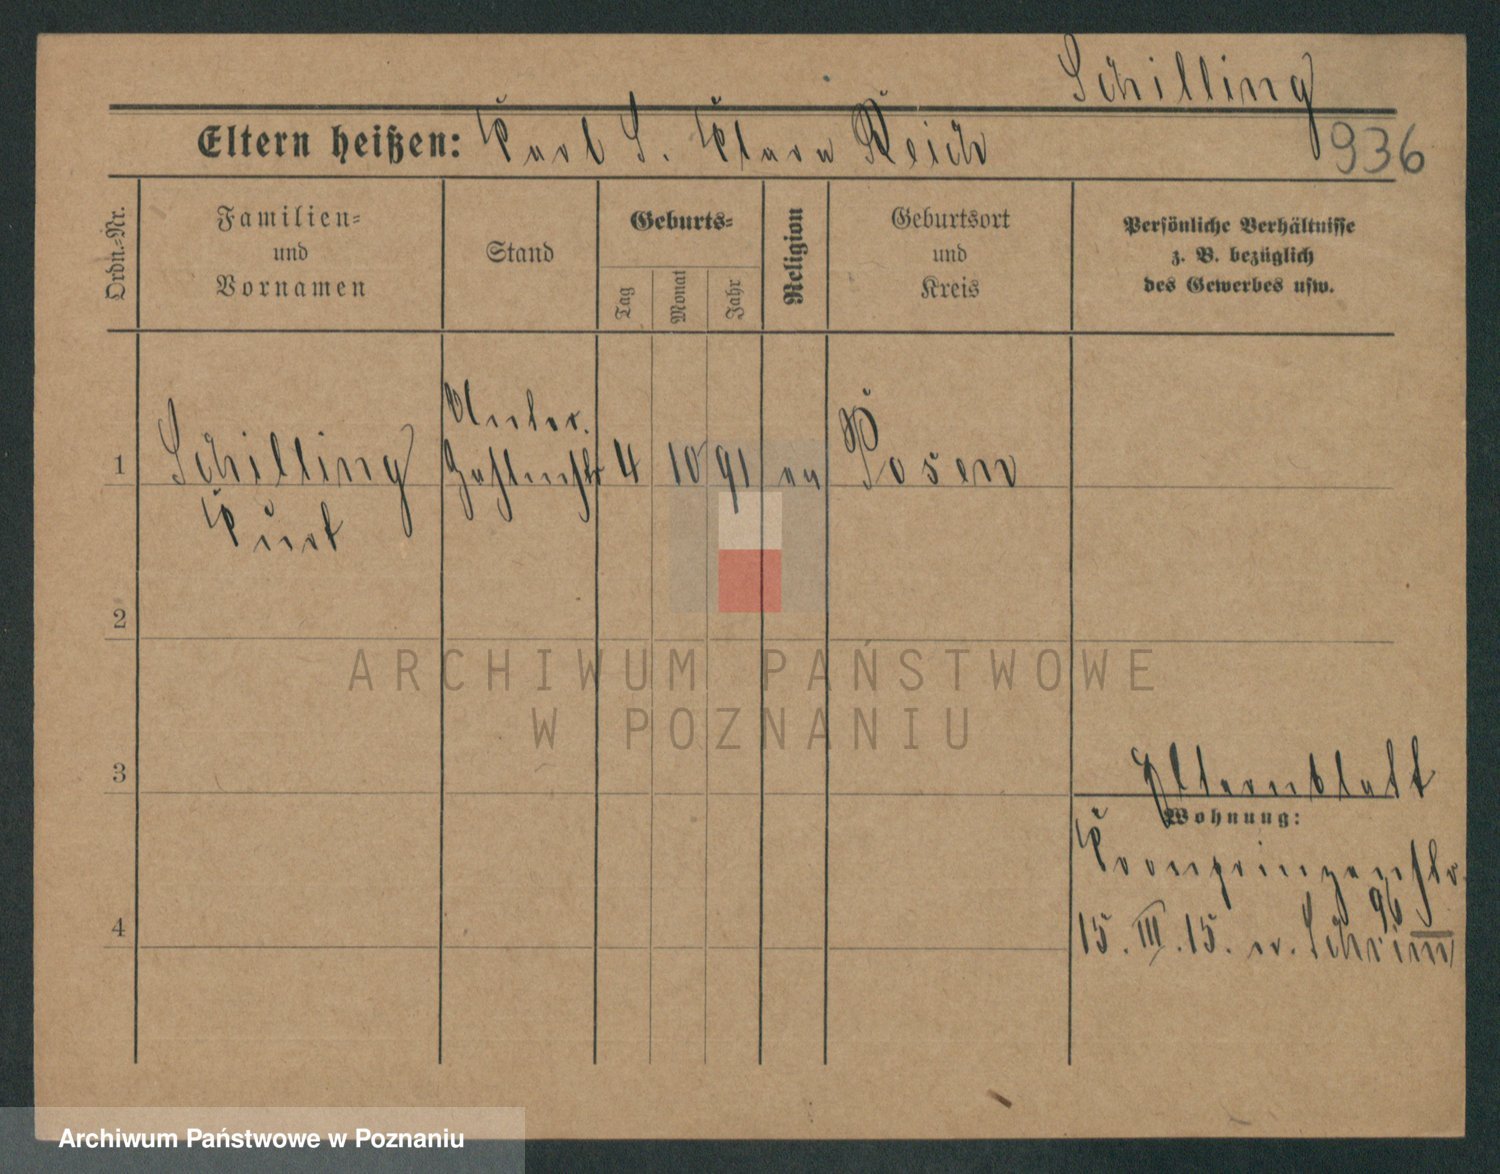 Schilling
Eltern heißen: Karl S. Klara Reich
936
Ordn.-Nr.
Familien-
und
Vornamen
Stand
Geburts-
Tag
Monat
Jahr
Religion
Geburtsort
und
Kreis
Persönliche Verhältnisse
z. B. bezüglich
des Gewerbes usw.
1 Schilling
Kurt
Unter.
Zahlmstr
4 10 91 ev Posen
2
3
4
Elternblatt
Wohnung:
Kronprinzenstr.
96
15. III. 15. n. Schrimm
ARCHIWUM PAŃSTWOWE
W POZNANIU
Archiwum Państwowe w Poznaniu